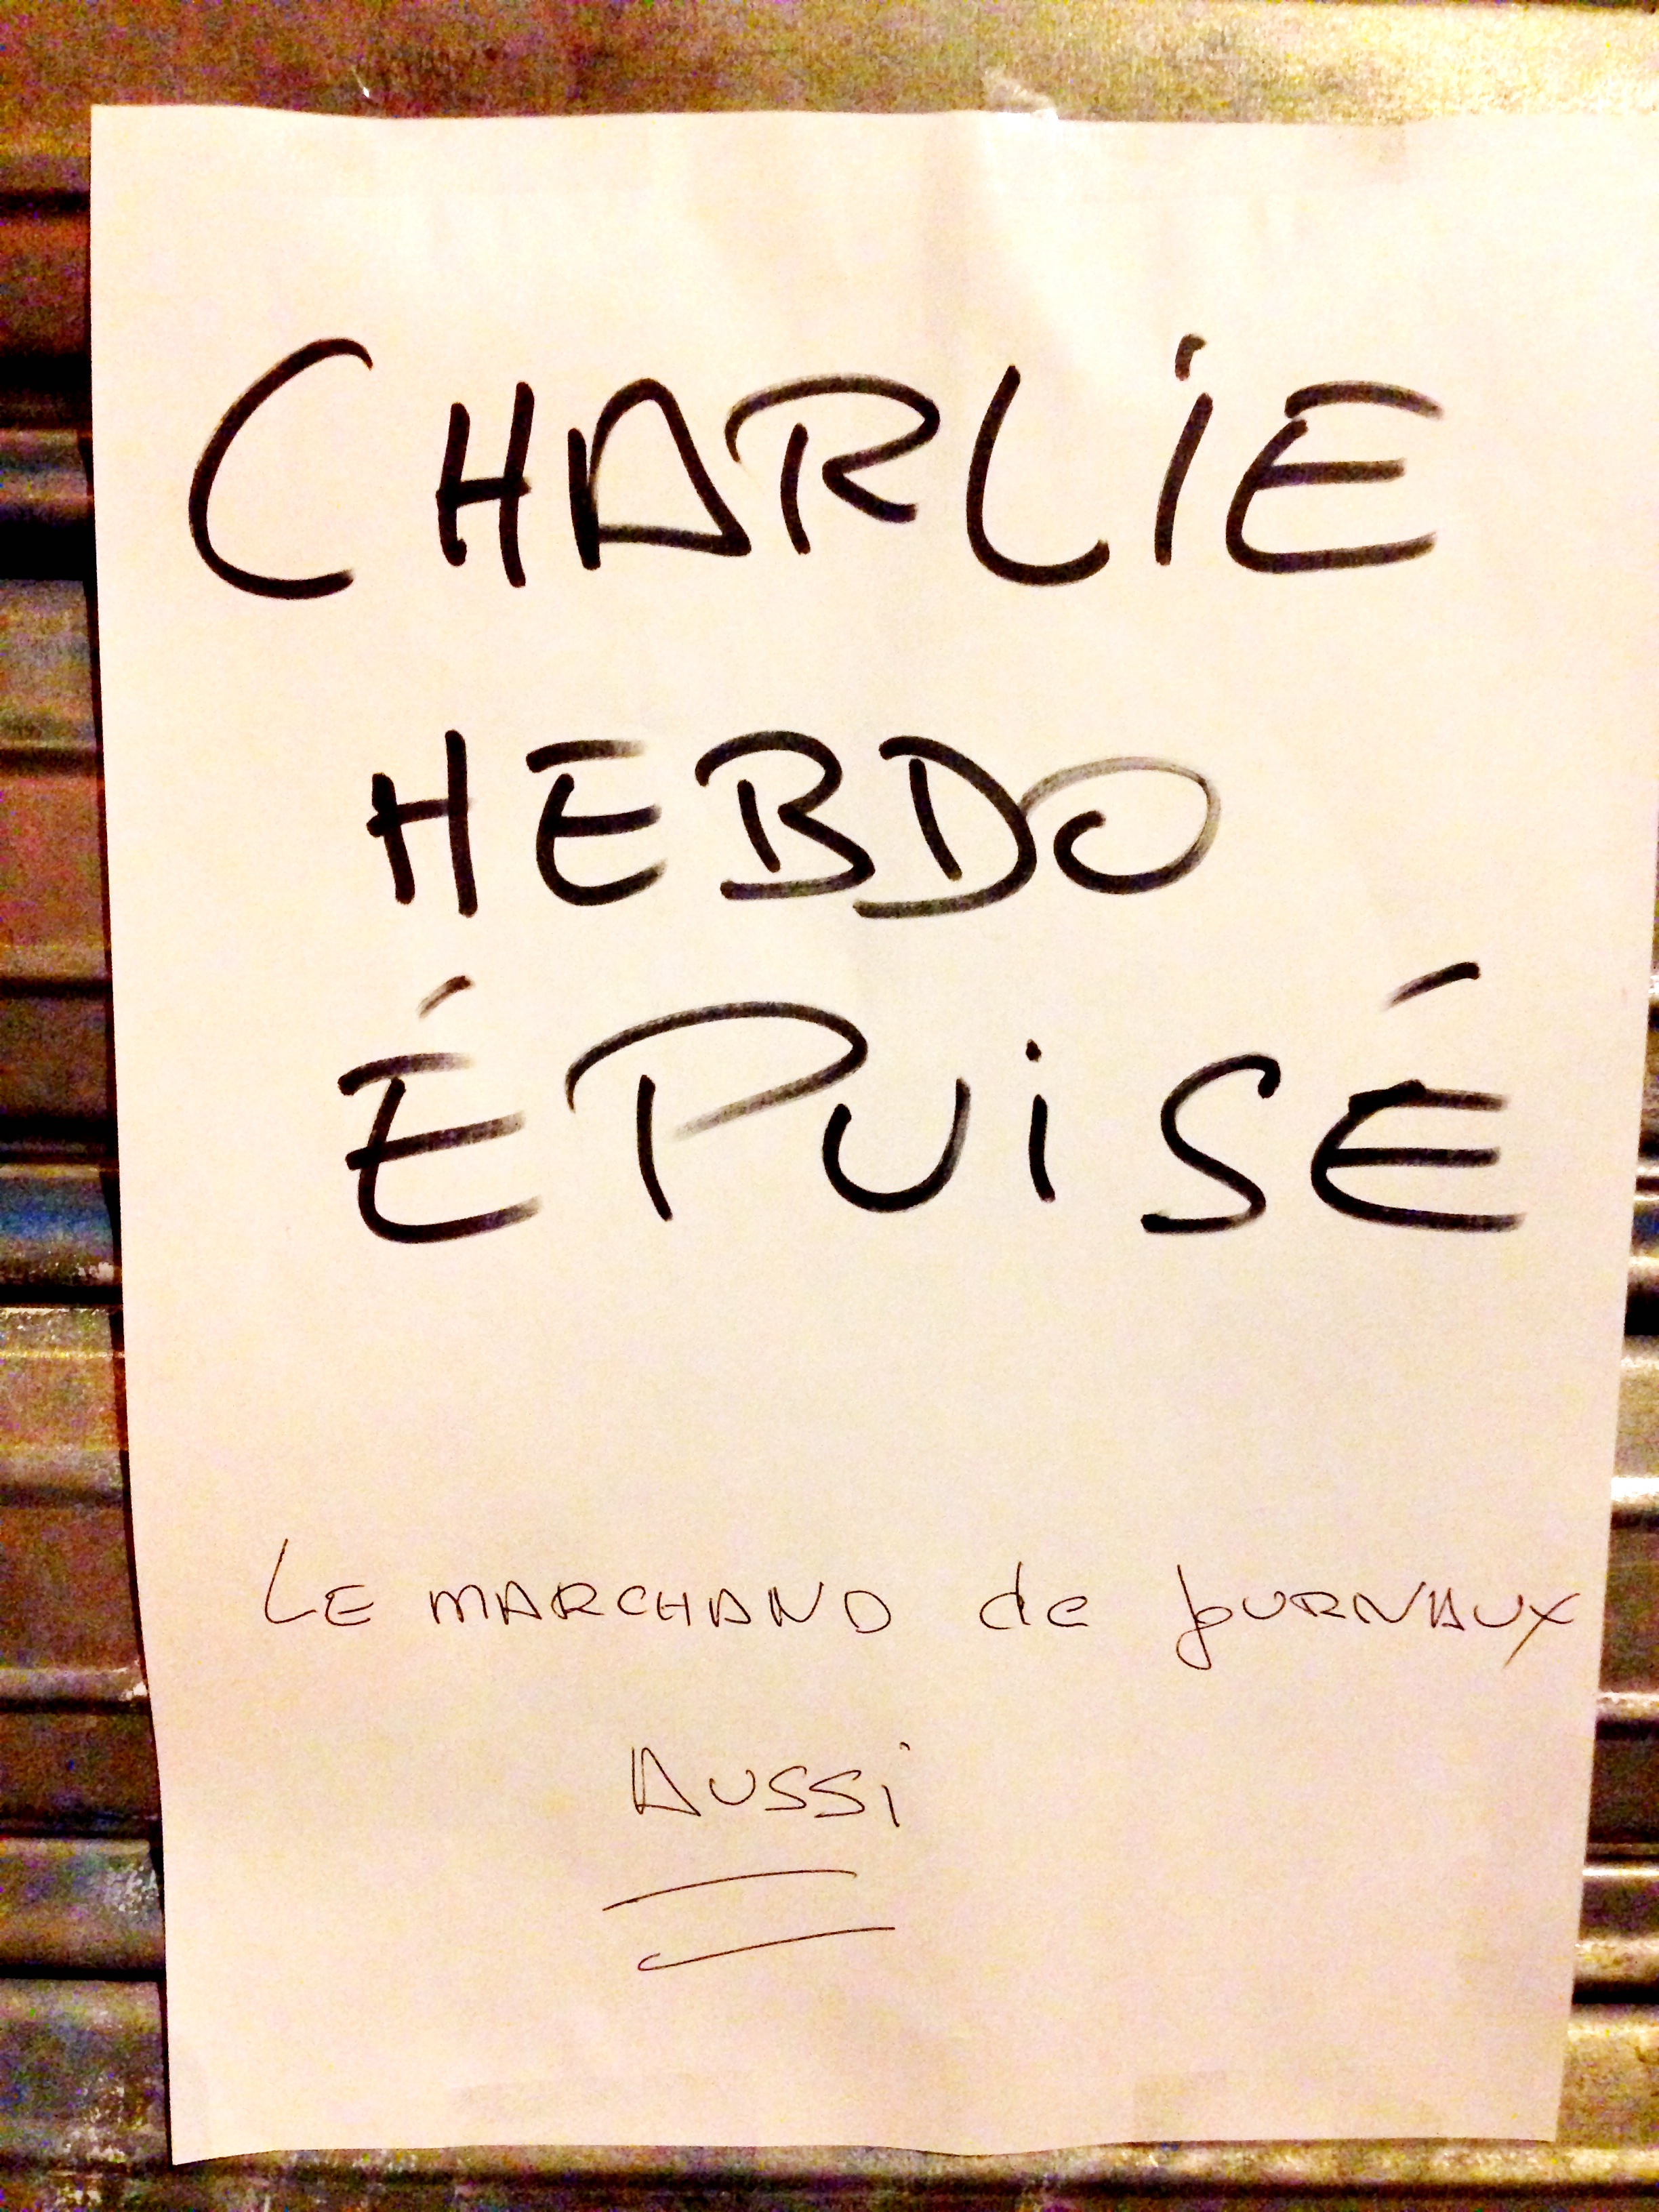 CHARLiE
HEBDO
ÉPUiSÉ
LE MARCHAND de JOURNAUX
AUSSi